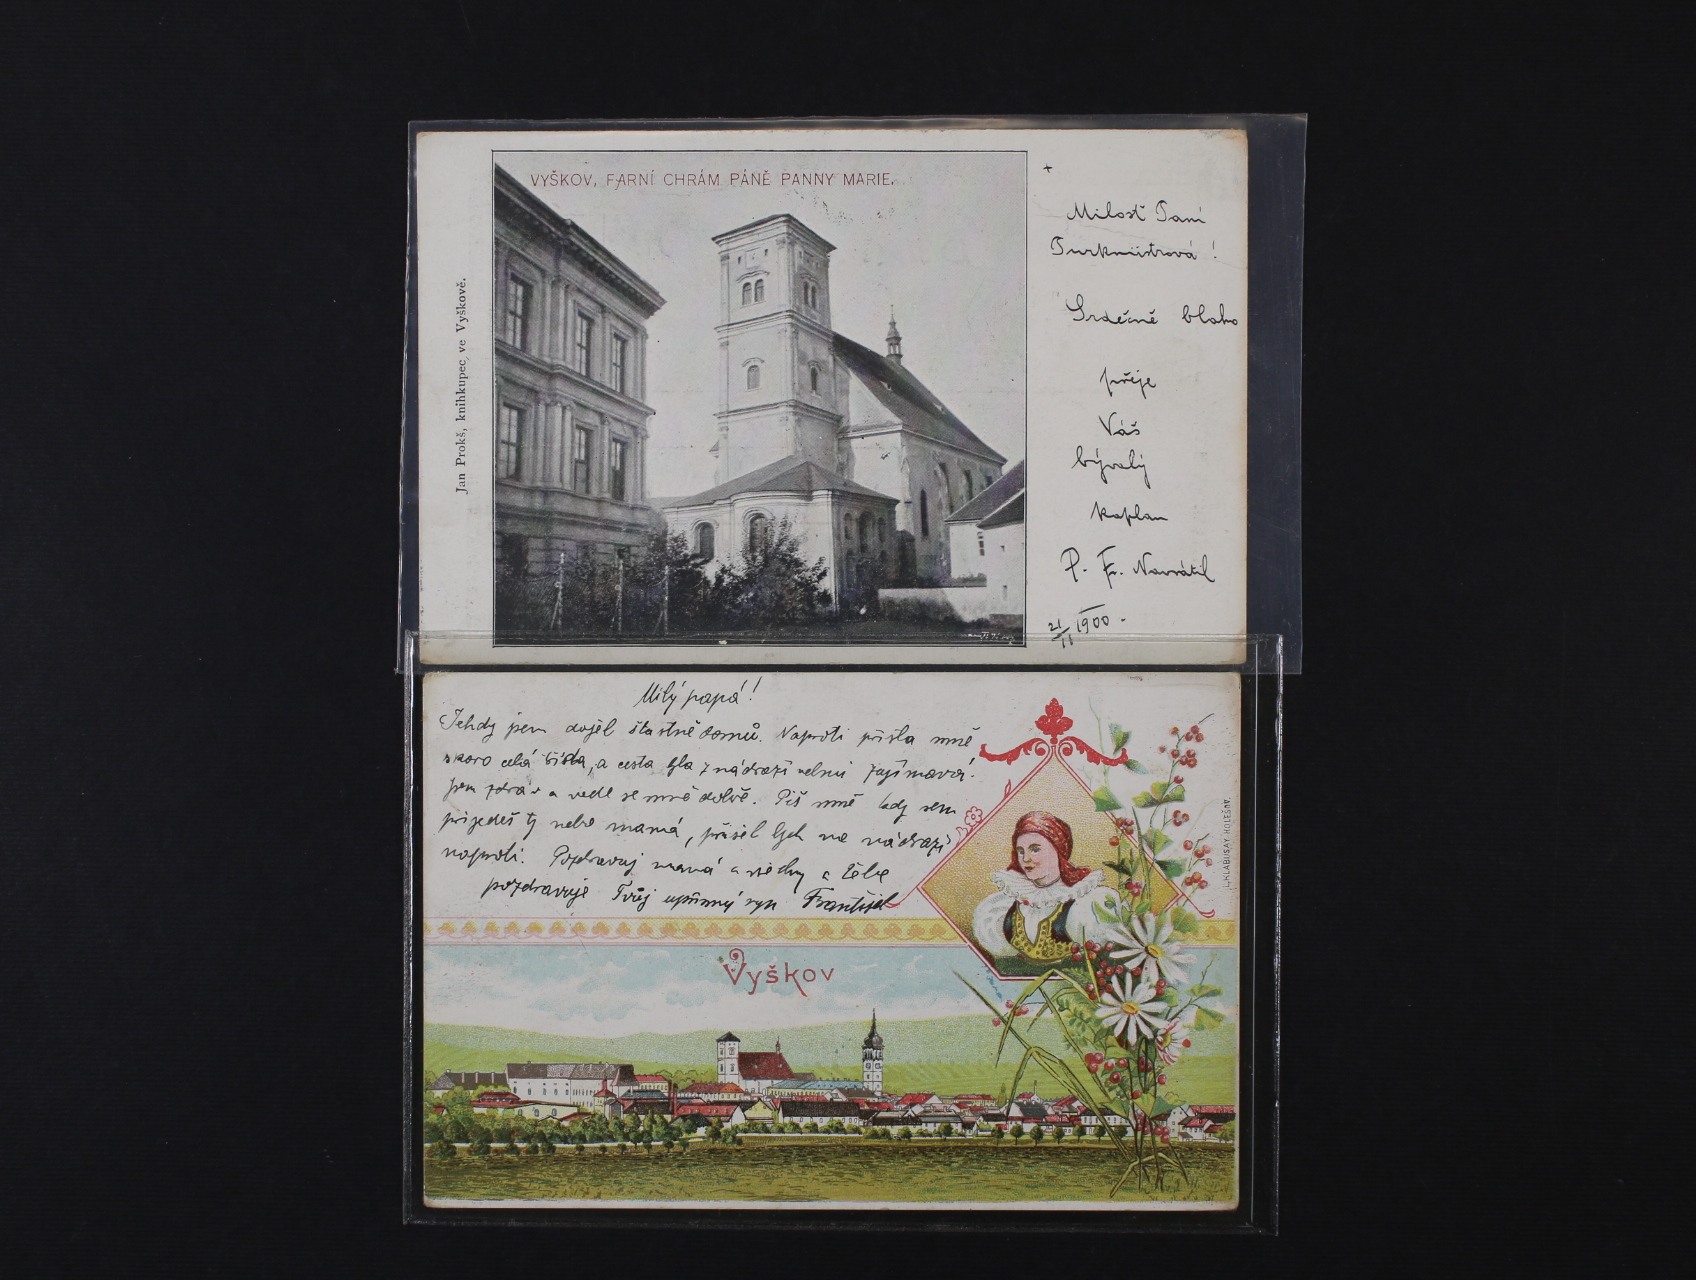 VYŠKOV, FARNÍ CHRÁM PÁNĚ PANNY MARIE.
Jan Prokš, knihkupec, ve Vyškově.
Milosť Paní
Purkmistrová!
Srdečné blaho
přeje
Váš
bývalý
kaplan
P. Fr. Navrátil
21/II 1900.
Milý papá!
Tehdy jsem dojel šťastně domů. Naproti přišla mně
skoro celá třída, a cesta z nádraží velmi zajímavá.
Jsem zdráv a vede se mně dobře. Piš mně kdy sem
přijedeš ty nebo mamá, přišel bych na nádraží
naproti. Pozdravuj mamá a všechny a Tebe
pozdravuje Tvůj upřímný syn František
Vyškov
L. KLABUSAY HOLEŠOV.